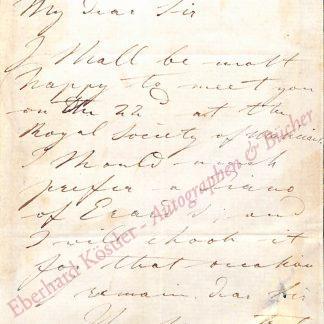 My dear Sir
I shall be most
happy to meet you
on the 22d at the
Royal Society of Musicians
I should much
prefer a piano
of Erard's, and
I will choose it
for that occasion
remain, dear Sir
Eberhard Köstler - Autographen & Bücher